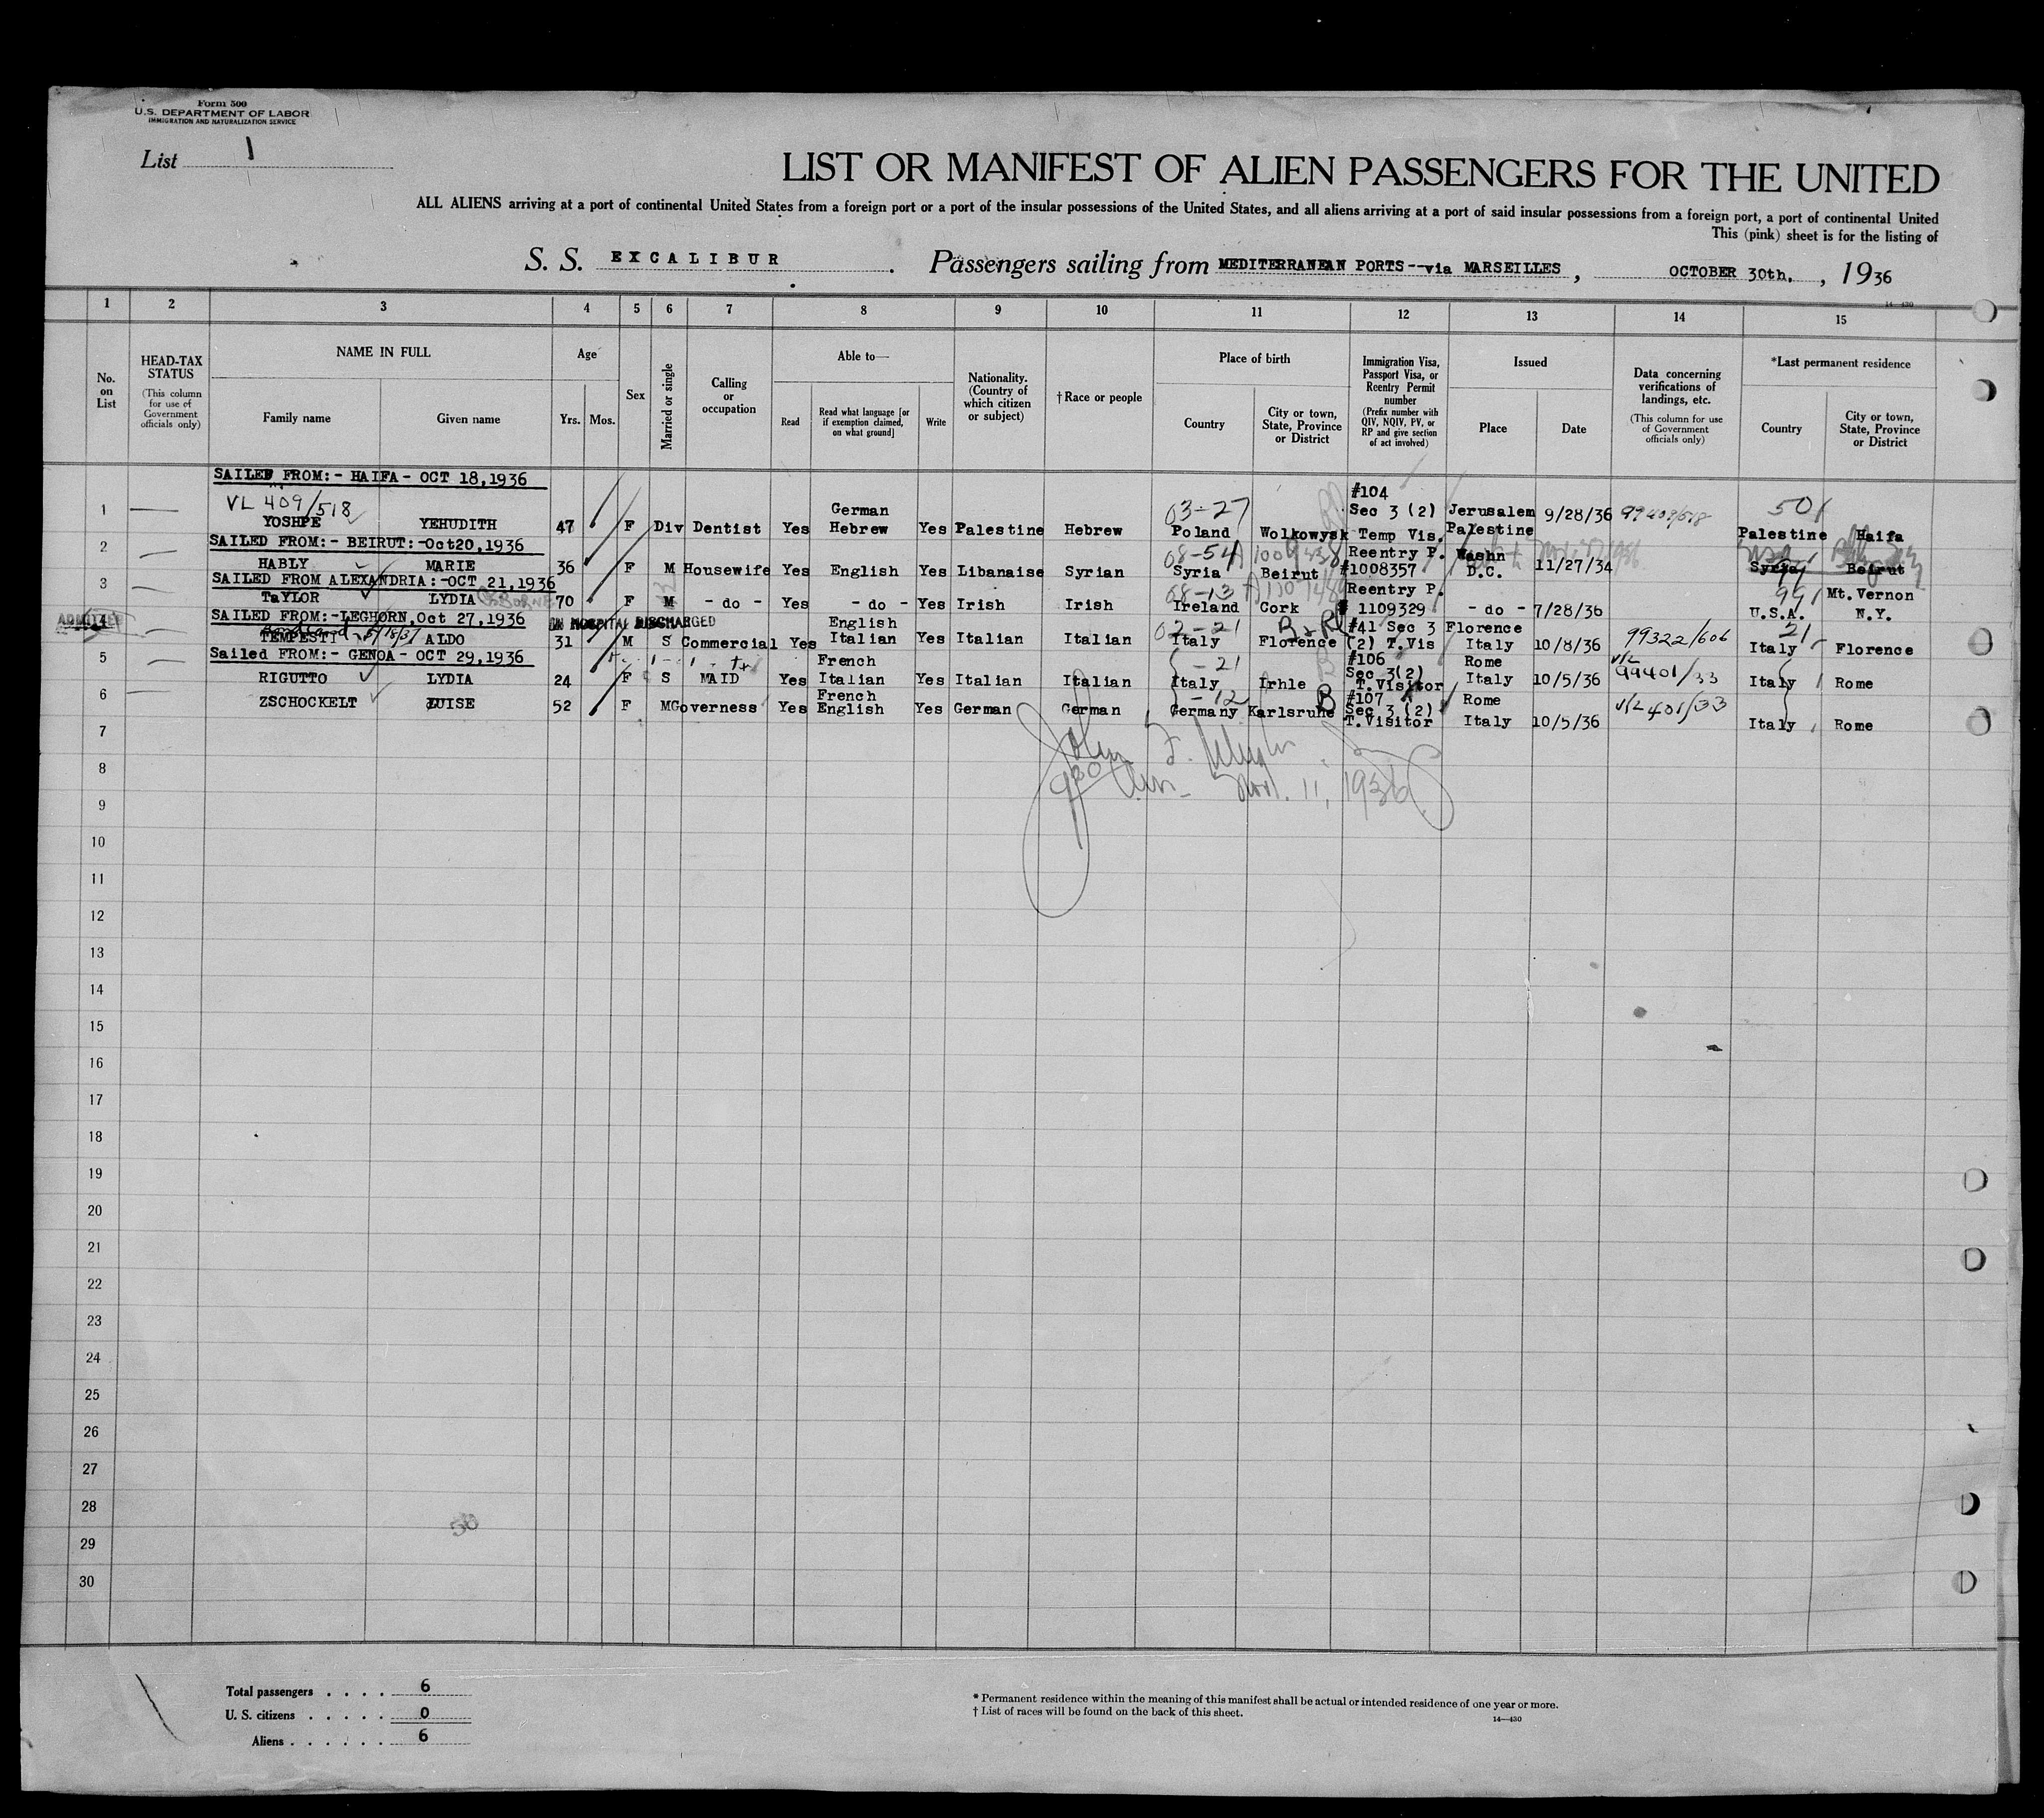 Form 500
U.S. DEPARTMENT OF LABOR
IMMIGRATION AND NATURALIZATION SERVICE
List 1
LIST OR MANIFEST OF ALIEN PASSENGERS FOR THE UNITED
ALL ALIENS arriving at a port of continental United States from a foreign port or a port of the insular possessions of the United States, and all aliens arriving at a port of said insular possessions from a foreign port, a port of continental United
This (pink) sheet is for the listing of
S. S. EXCALIBUR. Passengers sailing from MEDITERRANEAN PORTS--via MARSEILLES, OCTOBER 30th, , 1936
14-430
1 2 3 4 5 6 7 8 9 10 11 12 13 14 15
No. on List
HEAD-TAX STATUS
(This column for use of Government officials only)
NAME IN FULL
Family name
Given name
Age
Yrs. Mos.
Sex
Married or single
Calling or occupation
Able to—
Read
Read what language [or if exemption claimed, on what ground]
Write
Nationality. (Country of which citizen or subject)
†Race or people
Place of birth
Country
City or town, State, Province or District
Immigration Visa, Passport Visa, or Reentry Permit number
(Prefix number with QIV, NQIV, PV, or RP and give section of act involved)
Issued
Place
Date
Data concerning verifications of landings, etc.
(This column for use of Government officials only)
*Last permanent residence
Country
City or town, State, Province or District
SAILED FROM:- HAIFA- OCT 18,1936
VL 409/518 03-27 501
1 YOSHPE YEHUDITH 47 F Div Dentist Yes German Hebrew Yes Palestine Hebrew Poland Wolkowysk #104 Sec 3 (2) Temp Vis. Jerusalem Palestine 9/28/36 99409/518 Palestine Haifa
SAILED FROM:- BEIRUT:-Oct20,1936
08-54
2 HABLY MARIE 36 F M Housewife Yes English Yes Libanaise Syrian Syria Beirut Reentry P. #1008357 Washn D.C. 11/27/34 Syria Beirut
SAILED FROM ALEXANDRIA:-OCT 21,1936
08-13 99
3 TaYLOR LYDIA 70 F M - do - Yes - do - Yes Irish Irish Ireland Cork Reentry P. # 1109329 - do - 7/28/36 U.S.A. Mt. Vernon N.Y.
SAILED FROM:-LEGHORN,Oct 27,1936
ADMITTED IN HOSPITAL DISCHARGED
21
4 TEMPESTI ALDO 31 M S Commercial Yes English Italian Yes Italian Italian Italy Florence #41 Sec 3 (2) T.Vis Florence Italy 10/8/36 99322/606 Italy Florence
Sailed FROM:- GENOA- OCT 29,1936
-21
5 RIGUTTO LYDIA 24 F S MAID Yes French Italian Yes Italian Italian Italy Irhle #106 Sec 3(2) T.Visitor Rome Italy 10/5/36 V/L 99401/33 Italy Rome
-12 B
6 ZSCHOCKELT LUISE 52 F M Governess Yes French English Yes German German Germany Karlsruhe #107 Sec 3 (2) T.Visitor Rome Italy 10/5/36 V/L 401/33 Italy Rome
7
John F.
Nov. 11, 1936
8
9
10
11
12
13
14
15
16
17
18
19
20
21
22
23
24
25
26
27
28
50
29
30
Total passengers . . . . 6
U. S. citizens . . . . . 0
Aliens . . . . . . 6
* Permanent residence within the meaning of this manifest shall be actual or intended residence of one year or more.
† List of races will be found on the back of this sheet.
14-430